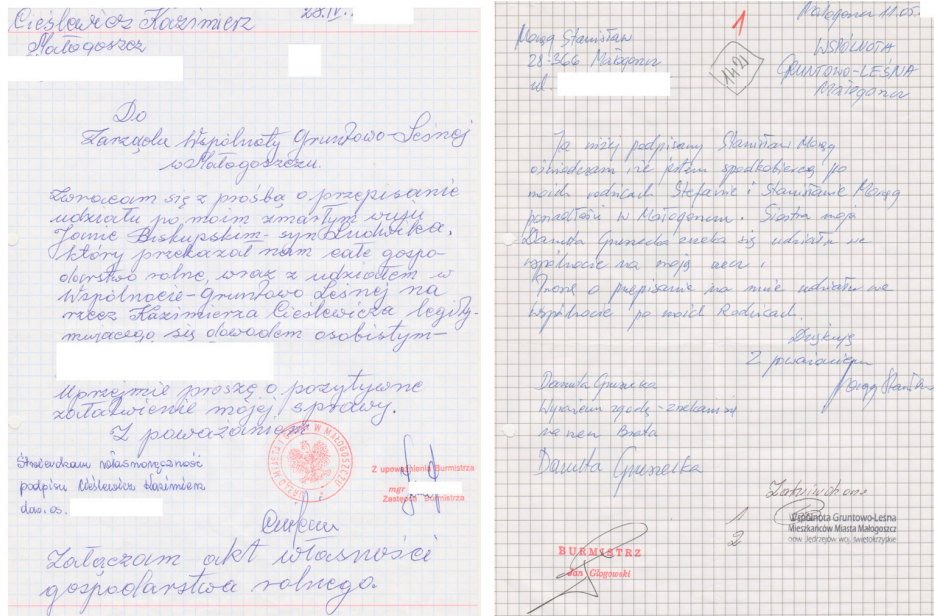 Cieślewicz Kazimierz
28.IV.
Małogoszcz
Do
Zarządu Wspólnoty Gruntowo-Leśnej
w Małogoszczu.
Zwracam się z prośbą o przepisanie
udziału po moim zmarłym wuju
Janie Biskupskim - syn Ludwika,
który przekazał nam całe gospo-
darstwo rolne, wraz z udziałem w
Wspólnocie-Gruntowo Leśnej na
rzecz Kazimierza Cieślewicza legity-
mującego się dowodem osobistym-
Uprzejmie proszę o pozytywne
załatwienie mojej sprawy.
Z poważaniem
Stwierdzam własnoręczność
podpisu Cieślewicz Kazimierz
dow. os.
Z upoważnienia Burmistrza
mgr
Zastępca Burmistrza
Załączam akt własności
gospodarstwa rolnego.
1
Małogoszcz 11.05.
Morąg Stanisław
28-366 Małogoszcz
ul.
1421
WSPÓLNOTA
GRUNTOWO-LEŚNA
Małogoszcz
Ja niżej podpisany Stanisław Morąg
oświadczam że jestem spadkobiercą po
moich rodzicach Stefanie i Stanisławie Morąg
w Małogoszczu. Siostra moja
Danuta Gruszecka zrzeka się udziału we
wspólnocie na moją rzecz i
Proszę o przepisanie na mnie udziału we
Wspólnocie po moich Rodzicach.
Dziękuję
Z poważaniem
Morąg Stanisław
Danuta Gruszecka
Wyrażam zgodę - zrzekam się
na rzecz Brata
Danuta Gruszecka
1
2
Wspólnota Gruntowo-Leśna
Mieszkańców Miasta Małogoszcz
pow. Jędrzejów woj. świętokrzyskie
BURMISTRZ
Jan Głogowski